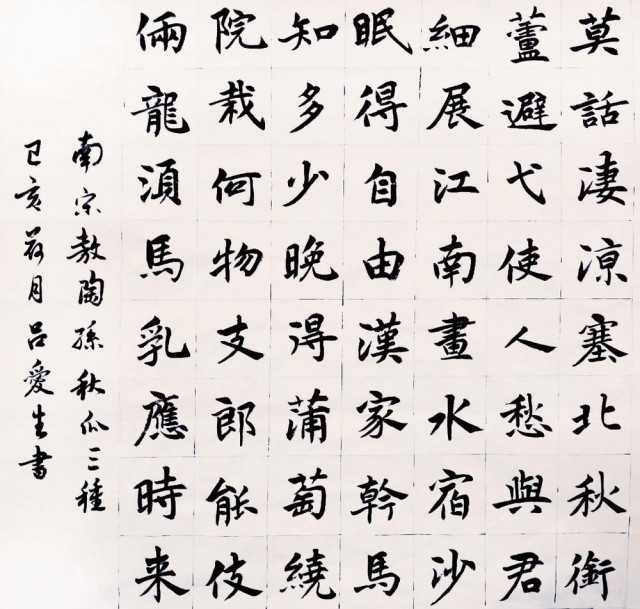 莫話淒涼塞北秋銜
蘆避弋使人愁與君
細展江南畫水宿沙
眠得自由漢家幹馬
知多少晚得蒲萄繞
院栽何物支郎能伎
倆龍湏馬乳應時来
南宋敖陶孫秋瓜三種
己亥荷月吕愛生書